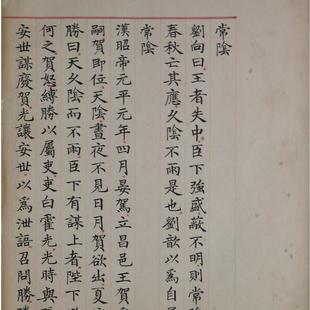 常陰
劉向曰王者失中臣下強盛蔽不明則常陰
春秋亡其應久陰不雨是也劉歆以為自
常陰
漢昭帝元平元年四月晏駕立昌邑王賀
嗣賀即位天陰晝夜不見日月賀欲出夏
勝曰天久陰而不雨臣下有謀上者陛下
何之賀怒縛勝以屬吏吏白霍光光時與
安世謀廢賀光讓安世以為泄語召問勝勝